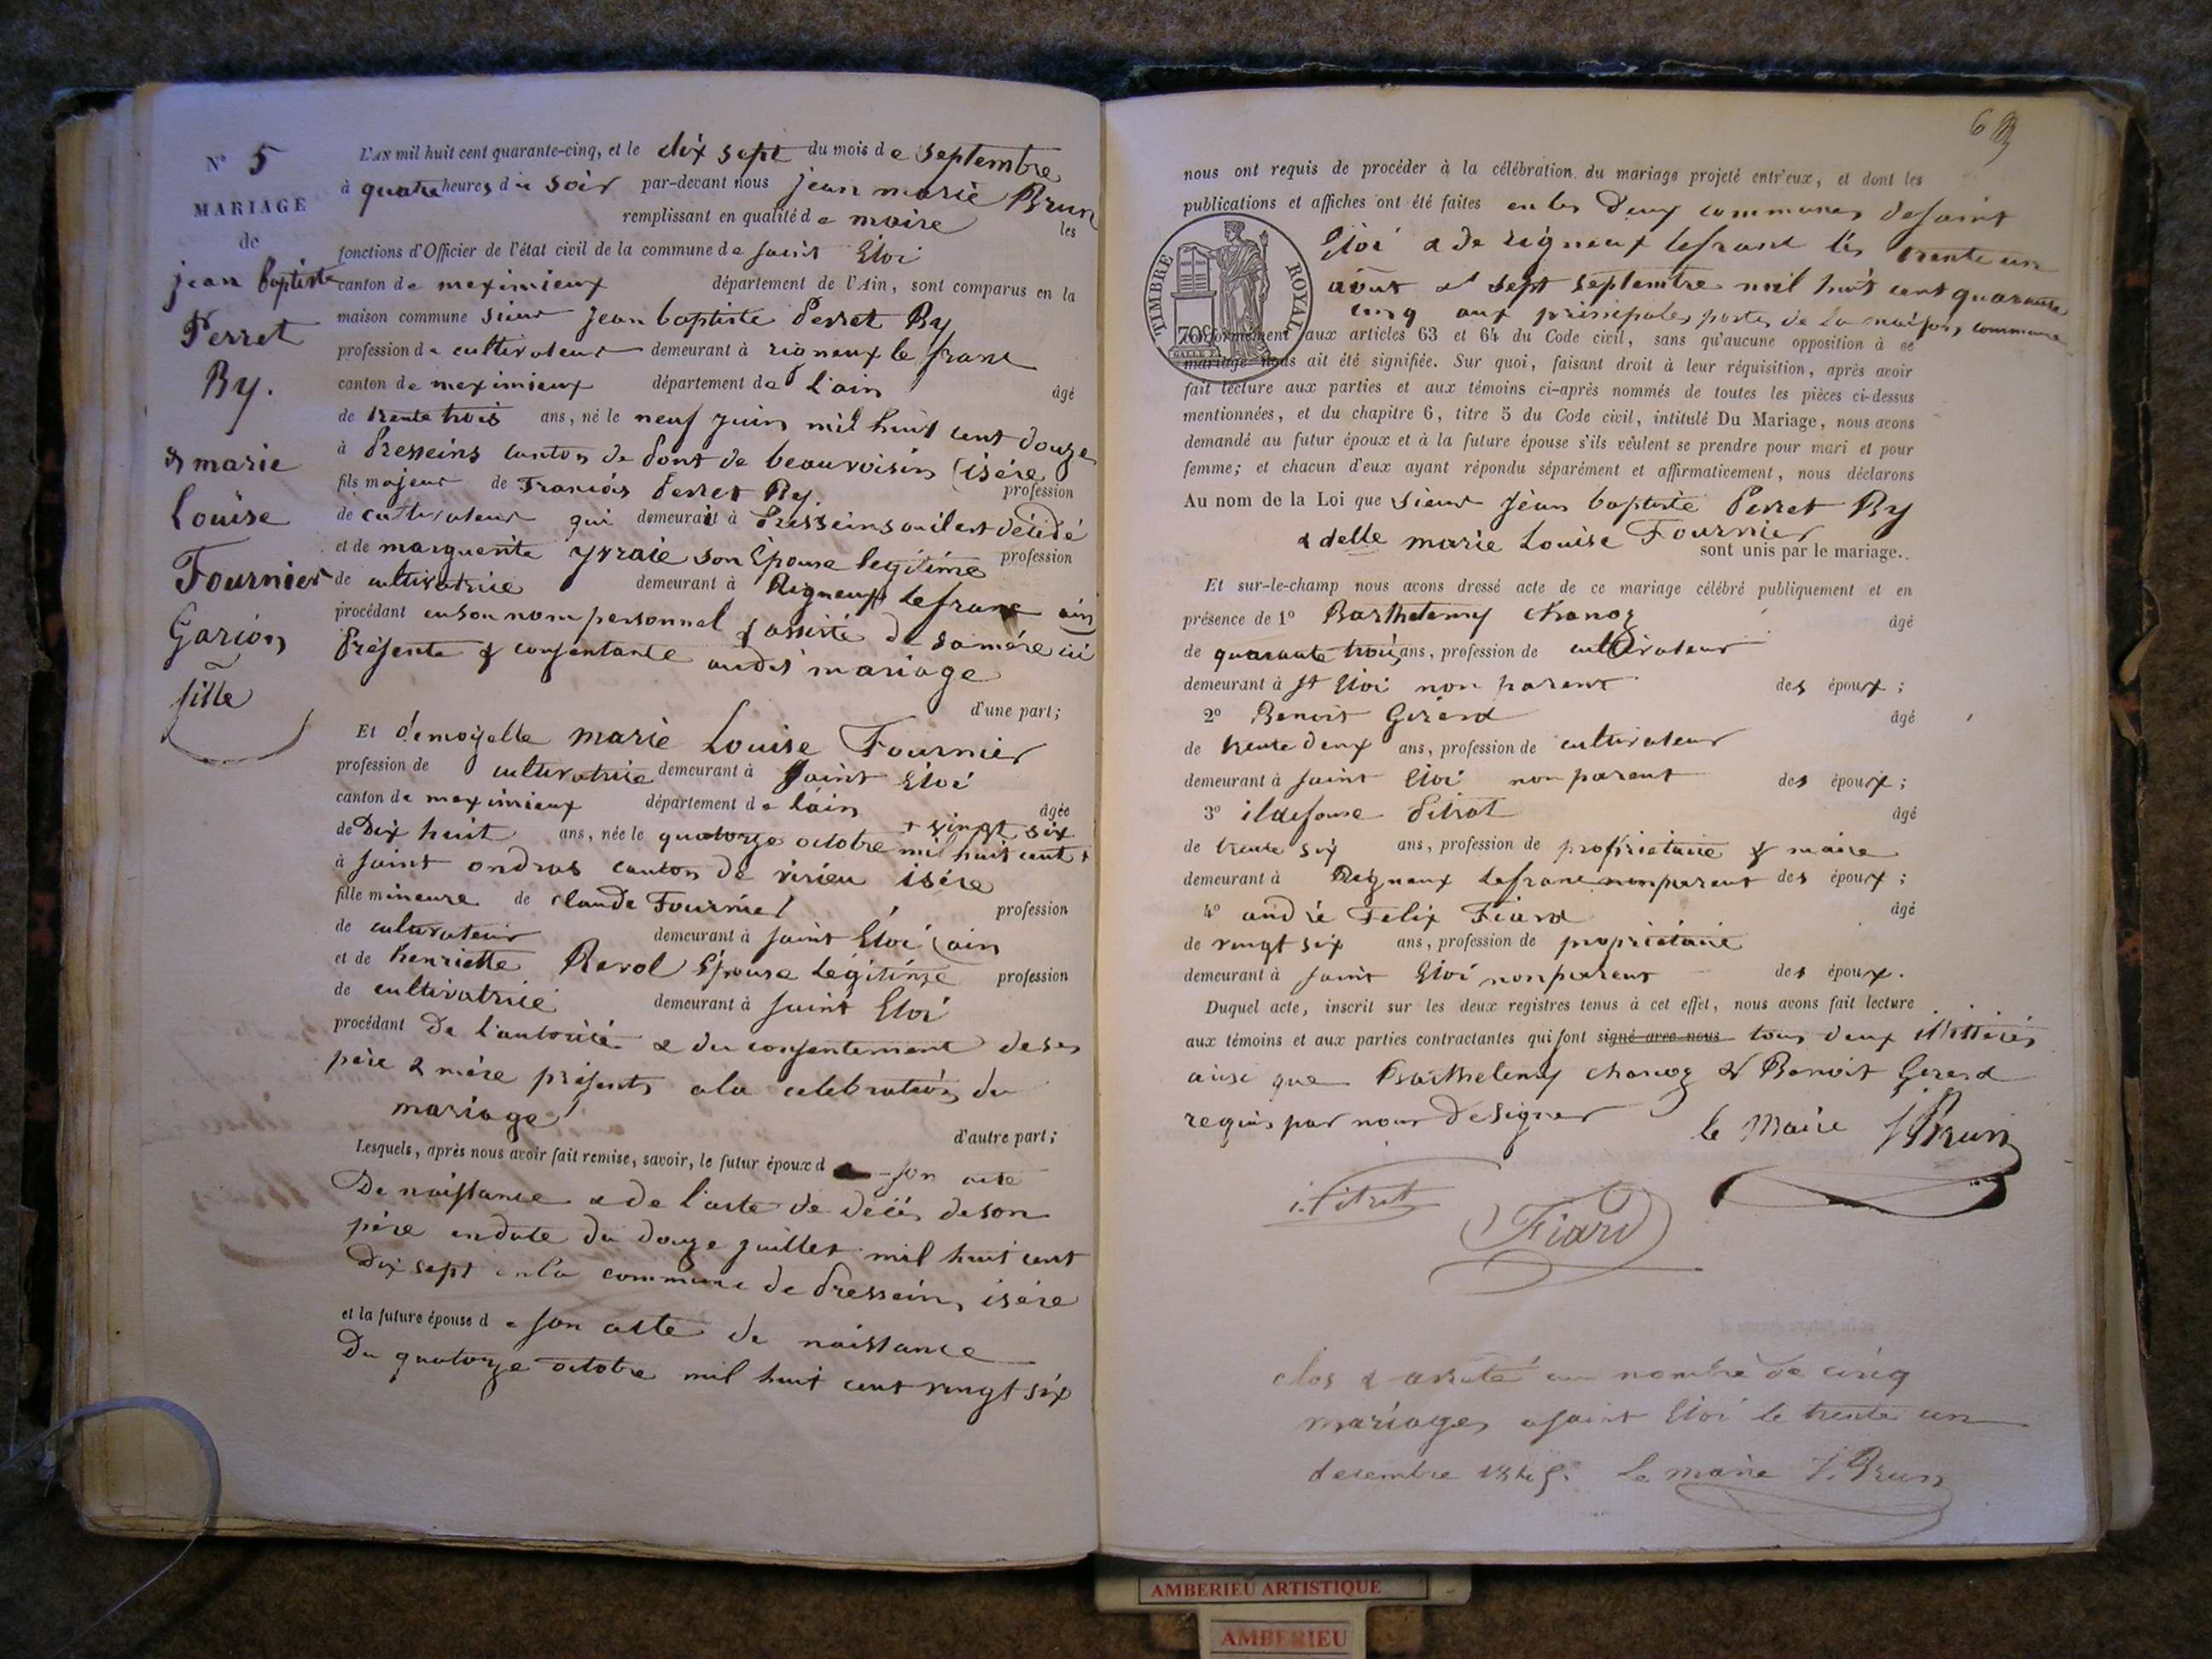 N° 5
MARIAGE
de
jean baptiste
Perret
By.
& marie
Louise
Fournier
Garçon
fille
L'AN mil huit cent quarante-cinq, et le dix sept du mois de septembre
à quatre heures du soir par-devant nous jean marie Brun
remplissant en qualité de maire les
fonctions d'Officier de l'état civil de la commune de saint Eloi
canton de meximieux département de l'Ain, sont comparus en la
maison commune sieur jean baptiste Perret By
profession de cultivateur demeurant à rigneux le franc
canton de meximieux département de l'ain âgé
de trente trois ans, né le neuf juin mil huit cent douze
à Presseins canton de Pont de beauvoisin (isére
fils majeur de Francois Perret By. profession
de cultivateur qui demeurait à Presseins ou il est décédé
et de marguerite yvraie son Epouse legitime profession
de cultivatrice demeurant à Rigneux Lefranc ain
procédant en son nom personnel & assisté de sa mére ici
Présente & consentante audit mariage
d'une part;
Et demoyelle marie Louise Fournier
profession de cultivatrice demeurant à saint Eloi
canton de meximieux département de l'ain âgée
+ vingt six
de Dix huit ans, née le quatorze octobre mil huit cent +
à saint ondras canton de virieu isére
fille mineure de claude Fournier profession
de cultivateur demeurant à saint Eloi (ain
et de henriette Revol Epouse Légitime profession
de cultivatrice demeurant à saint Eloi
procédant De l'autorité & du consentement de ses
père & mère présents a la celebration du
mariage
d'autre part;
Lesquels, après nous avoir fait remise, savoir, le futur époux d son acte
De naissance & de l'acte de décés de son
père en date du douze juillet mil huit cent
Dix sept en la commune de Pressein, isére
et la future épouse de son acte de naissance
Du quatorze octobre mil huit cent vingt six
nous ont requis de procéder à la célébration du mariage projeté entr'eux, et dont les
publications et affiches ont été faites en les Deux communes de saint
Eloi & de rigneux lefranc les trente un
août & sept septembre mil huit cent quarante
cinq aux principales portes de la maison commune
TIMBRE ROYAL
70
conformément aux articles 63 et 64 du Code civil, sans qu'aucune opposition à ce
mariage nous ait été signifiée. Sur quoi, faisant droit à leur réquisition, après avoir
fait lecture aux parties et aux témoins ci-après nommés de toutes les pièces ci-dessus
mentionnées, et du chapitre 6, titre 5 du Code civil, intitulé Du Mariage, nous avons
demandé au futur époux et à la future épouse s'ils veulent se prendre pour mari et pour
femme; et chacun d'eux ayant répondu séparément et affirmativement, nous déclarons
Au nom de la Loi que sieur Jean baptiste Perret By
& delle marie Louise Fournier
sont unis par le mariage.
Et sur-le-champ nous avons dressé acte de ce mariage célébré publiquement et en
présence de 1° Barthelemy chanoz âgé
de quarante trois ans, profession de cultivateur
demeurant à st Eloi non parent des époux;
2° Benoit Gérard âgé
de trente deux ans, profession de cultivateur
demeurant à saint Eloi non parent des époux;
3° ildefonse Pitrat âgé
de trente six ans, profession de proprietaire & maire
demeurant à Rigneux Lefranc non parent des époux;
4° andré Felix Fiard âgé
de vingt six ans, profession de propriétaire
demeurant à saint Eloi non parent des époux.
Duquel acte, inscrit sur les deux registres tenus à cet effet, nous avons fait lecture
aux témoins et aux parties contractantes qui sont signé avec nous tous deux illittérés
ainsi que Barthelemy chanoz & Benoit Gerard
requis par nous de signer le Maire J Brun
i. Pitrat
Fiard
clos & arrêté au nombre de cinq
mariages a saint Eloi le trente un
decembre 1845. Le maire J. Brun
AMBERIEU ARTISTIQUE
AMBERIEU